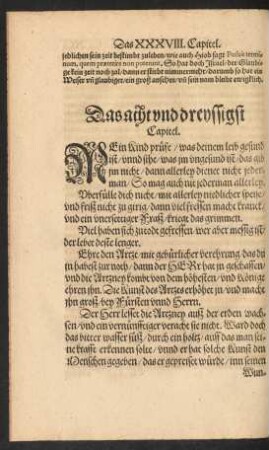 Das XXXVIII. Capitel.
jedlichen sein zeit bestimbt zuleben/ wie auch Hiob sagt
num, quem praeterire non poterunt, So hat doch Israel/ der Glaubi-
ge kein zeit noch zal/ dann er stirbt nimmermehr/ darumb so hat ein
Weiser vñ glaubiger/ ein groß ansehen/ vñ sein nam bleibt ewigklich.
Das acht vnd dreyssigst
Capitel.
MEin Kind prüfe/ was deinem leib gesund
ist/ vnnd sihe/ was jm vngesund ist/ das gib
jm nicht/ dann allerley dienet nicht jeder-
man/ So mag auch nit jederman allerley.
Vberfülle dich nicht/ mit allerley niedlicher speise/
vnd friß nicht zu girig/ dann viel fressen macht kranck/
vnd ein vnersettiger Fraß/ kriegt das grimmen.
Viel haben sich zu tode gefressen/ wer aber messig ist/
der lebet deste lenger.
Ehre den Artzt/ mit gebürlicher verehrung/ das du
jn habest zur noth/ dann der HErr hat jn geschaffen/
vnd die Artzney kombt von dem höhesten/ vnd Könige
ehren jhn. Die Kunst des Artzes erhöhet jn/ vnd macht
jhn groß/ bey Fürsten vnnd Herrn.
Der Herr lesset die Artzney auß der erden wach-
sen/ vnd ein vernünfftiger veracht sie nicht. Ward doch
das bitter wasser süß/ durch ein holtz/ auff das man sei-
ne krafft erkennen solte/ vnnd er hat solche Kunst den
Menschen gegeben/ das er gepreiset würde/ inn seinen
Wun-